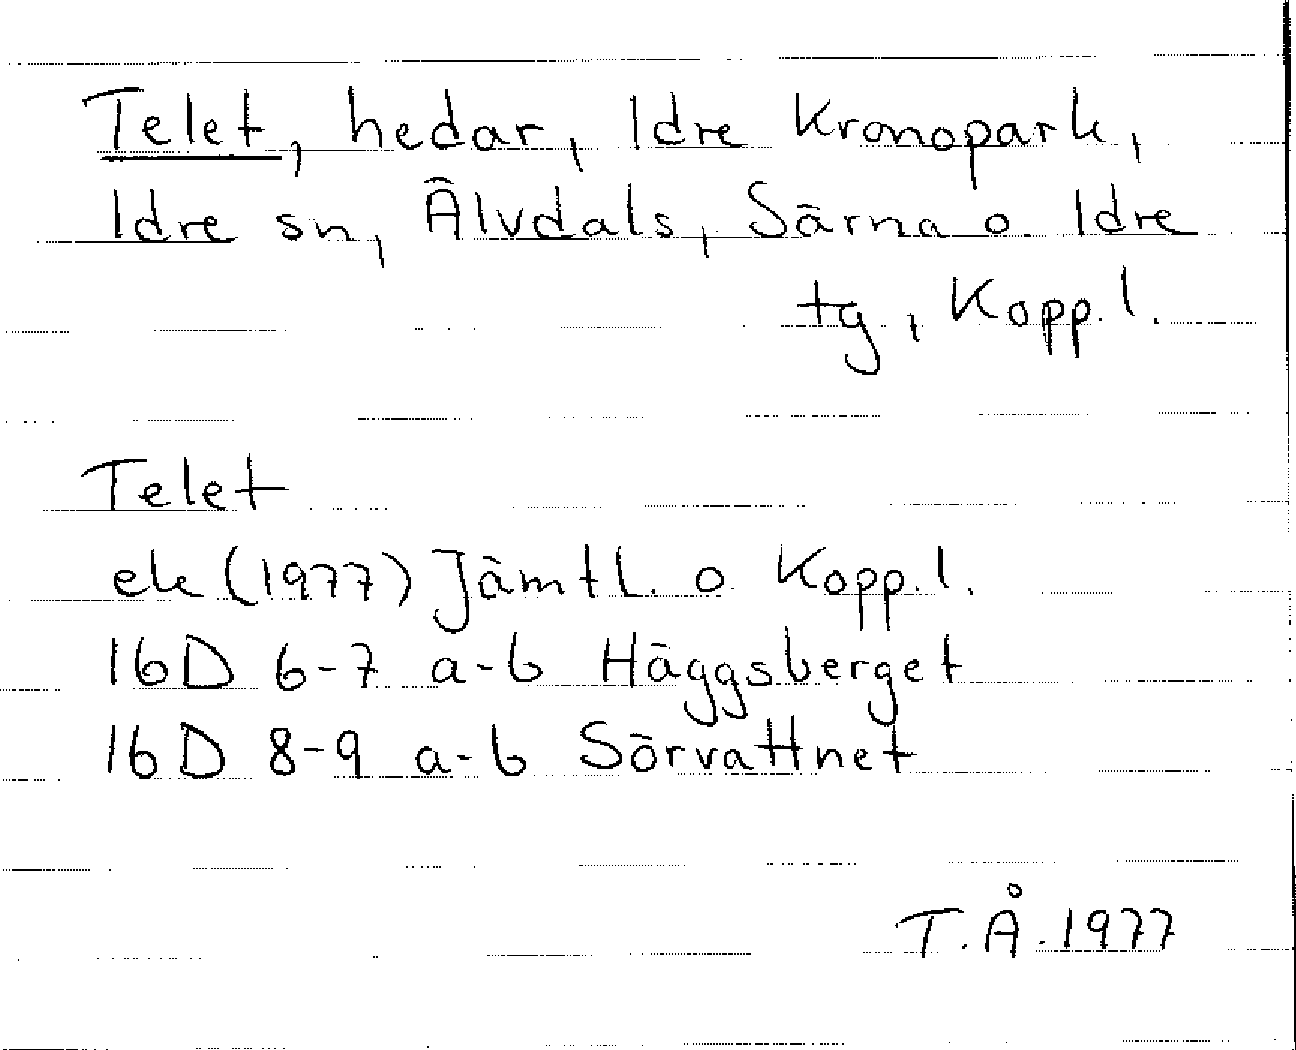 Telet, hedar, Idre Kronopark,
Idre sn, Älvdals, Särna o. Idre
tg, Kopp. l.
Telet
ek (1977) Jämtl. o Kopp. l.
16D 6-7 a-b Häggsberget
16D 8-9 a-b Sörvattnet
T. Å. 1977